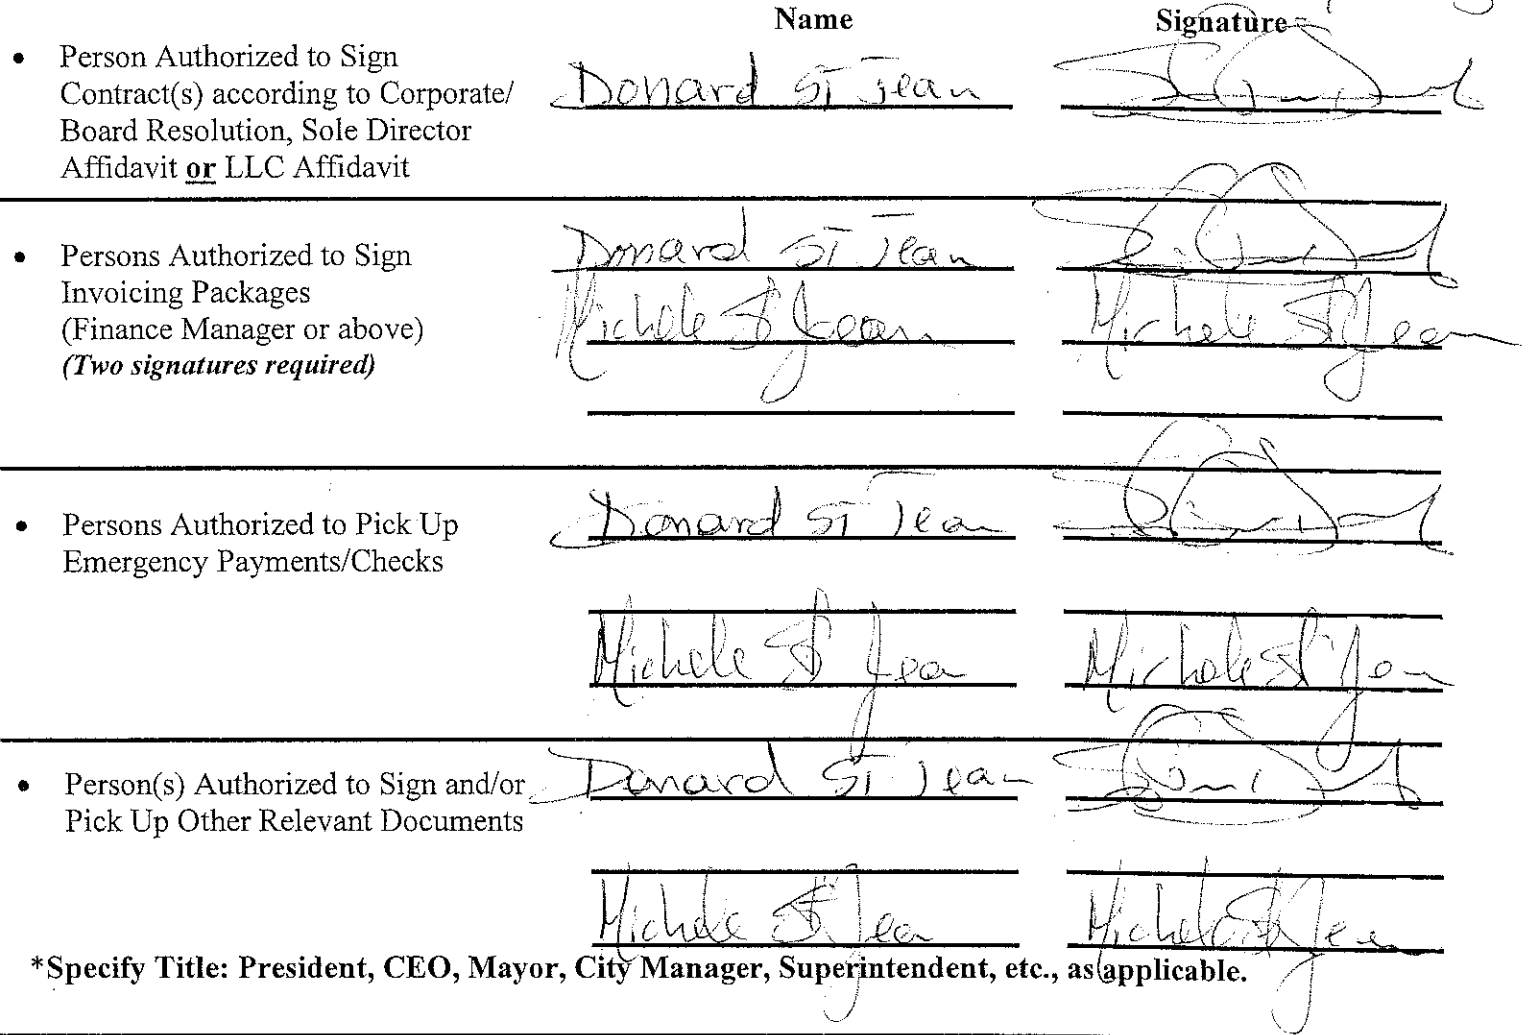 Name Signature
• Person Authorized to Sign
Contract(s) according to Corporate/
Board Resolution, Sole Director
Affidavit or LLC Affidavit
Donard St Jean
• Persons Authorized to Sign
Invoicing Packages
(Finance Manager or above)
(Two signatures required)
Donard St Jean
Michele St Jean Michele St Jean
• Persons Authorized to Pick Up
Emergency Payments/Checks
Donard St Jean
Michele St Jean Michele St Jean
• Person(s) Authorized to Sign and/or
Pick Up Other Relevant Documents
Donard St Jean
Michele St Jean Michele St Jean
*Specify Title: President, CEO, Mayor, City Manager, Superintendent, etc., as applicable.